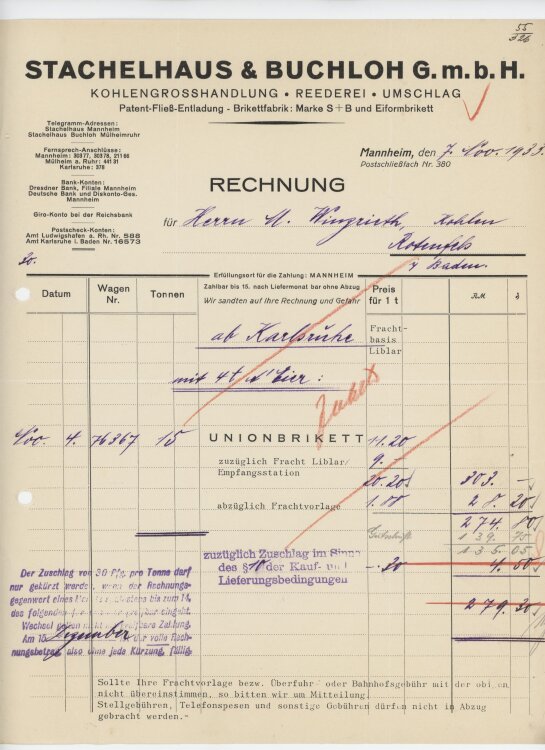 55
326
STACHELHAUS & BUCHLOH G.m.b.H.
KOHLENGROSSHANDLUNG • REEDEREI • UMSCHLAG
Patent-Fließ-Entladung - Brikettfabrik: Marke S+B und Eiformbrikett
Telegramm-Adressen:
Stachelhaus Mannheim
Stachelhaus Buchloh Mülheimruhr
Fernsprech-Anschlüsse:
Mannheim: 30377, 30378, 21166
Mülheim a. Ruhr: 44131
Karlsruhe: 378
Bank-Konten:
Dresdner Bank, Filiale Mannheim
Deutsche Bank und Diskonto-Ges.
Mannheim
Giro-Konto bei der Reichsbank
Postscheck-Konten:
Amt Ludwigshafen a. Rh. Nr. 588
Amt Karlsruhe i. Baden Nr. 16573
Mannheim, den 7. Nov. 1933.
Postschließfach Nr. 380
RECHNUNG
für Herrn Kohlen
Rotenfels
/ Baden.
20.
Erfüllungsort für die Zahlung: MANNHEIM
Datum
Wagen Nr.
Tonnen
Zahlbar bis 15. nach Liefermonat bar ohne Abzug
Wir sandten auf Ihre Rechnung und Gefahr
Preis für 1 t
RM
ab Karlsruhe
Fracht-
basis
Liblar
mit 4t Eier:
Nov. 4. 76367 15 UNIONBRIKETT 11.20
zuzüglich Fracht Liblar/ 9.-
Empfangsstation
20.20 303. -
abzüglich Frachtvorlage 1.88 28. 20
274 80
Gutschrift 139. 75
135. 05
zuzüglich Zuschlag im Sinne
des § 10 der Kauf- und -.30 4.50
Lieferungsbedingungen
279. 30
Der Zuschlag von 30 Pfg. pro Tonne darf
nur gekürzt werden, wenn der Rechnungs-
gegenwert bis zum 14.
des folgenden eingeht.
Wechsel gelten nicht Zahlung.
Am 15. Dezember der volle Rech-
nungsbetrag, also ohne jede Kürzung, fällig.
Sollte Ihre Frachtvorlage bezw. Überfuhr- oder Bahnhofsgebühr mit der obigen
nicht übereinstimmen, so bitten wir um Mitteilung.
Stellgebühren, Telefonspesen und sonstige Gebühren dürfen nicht in Abzug
gebracht werden.-